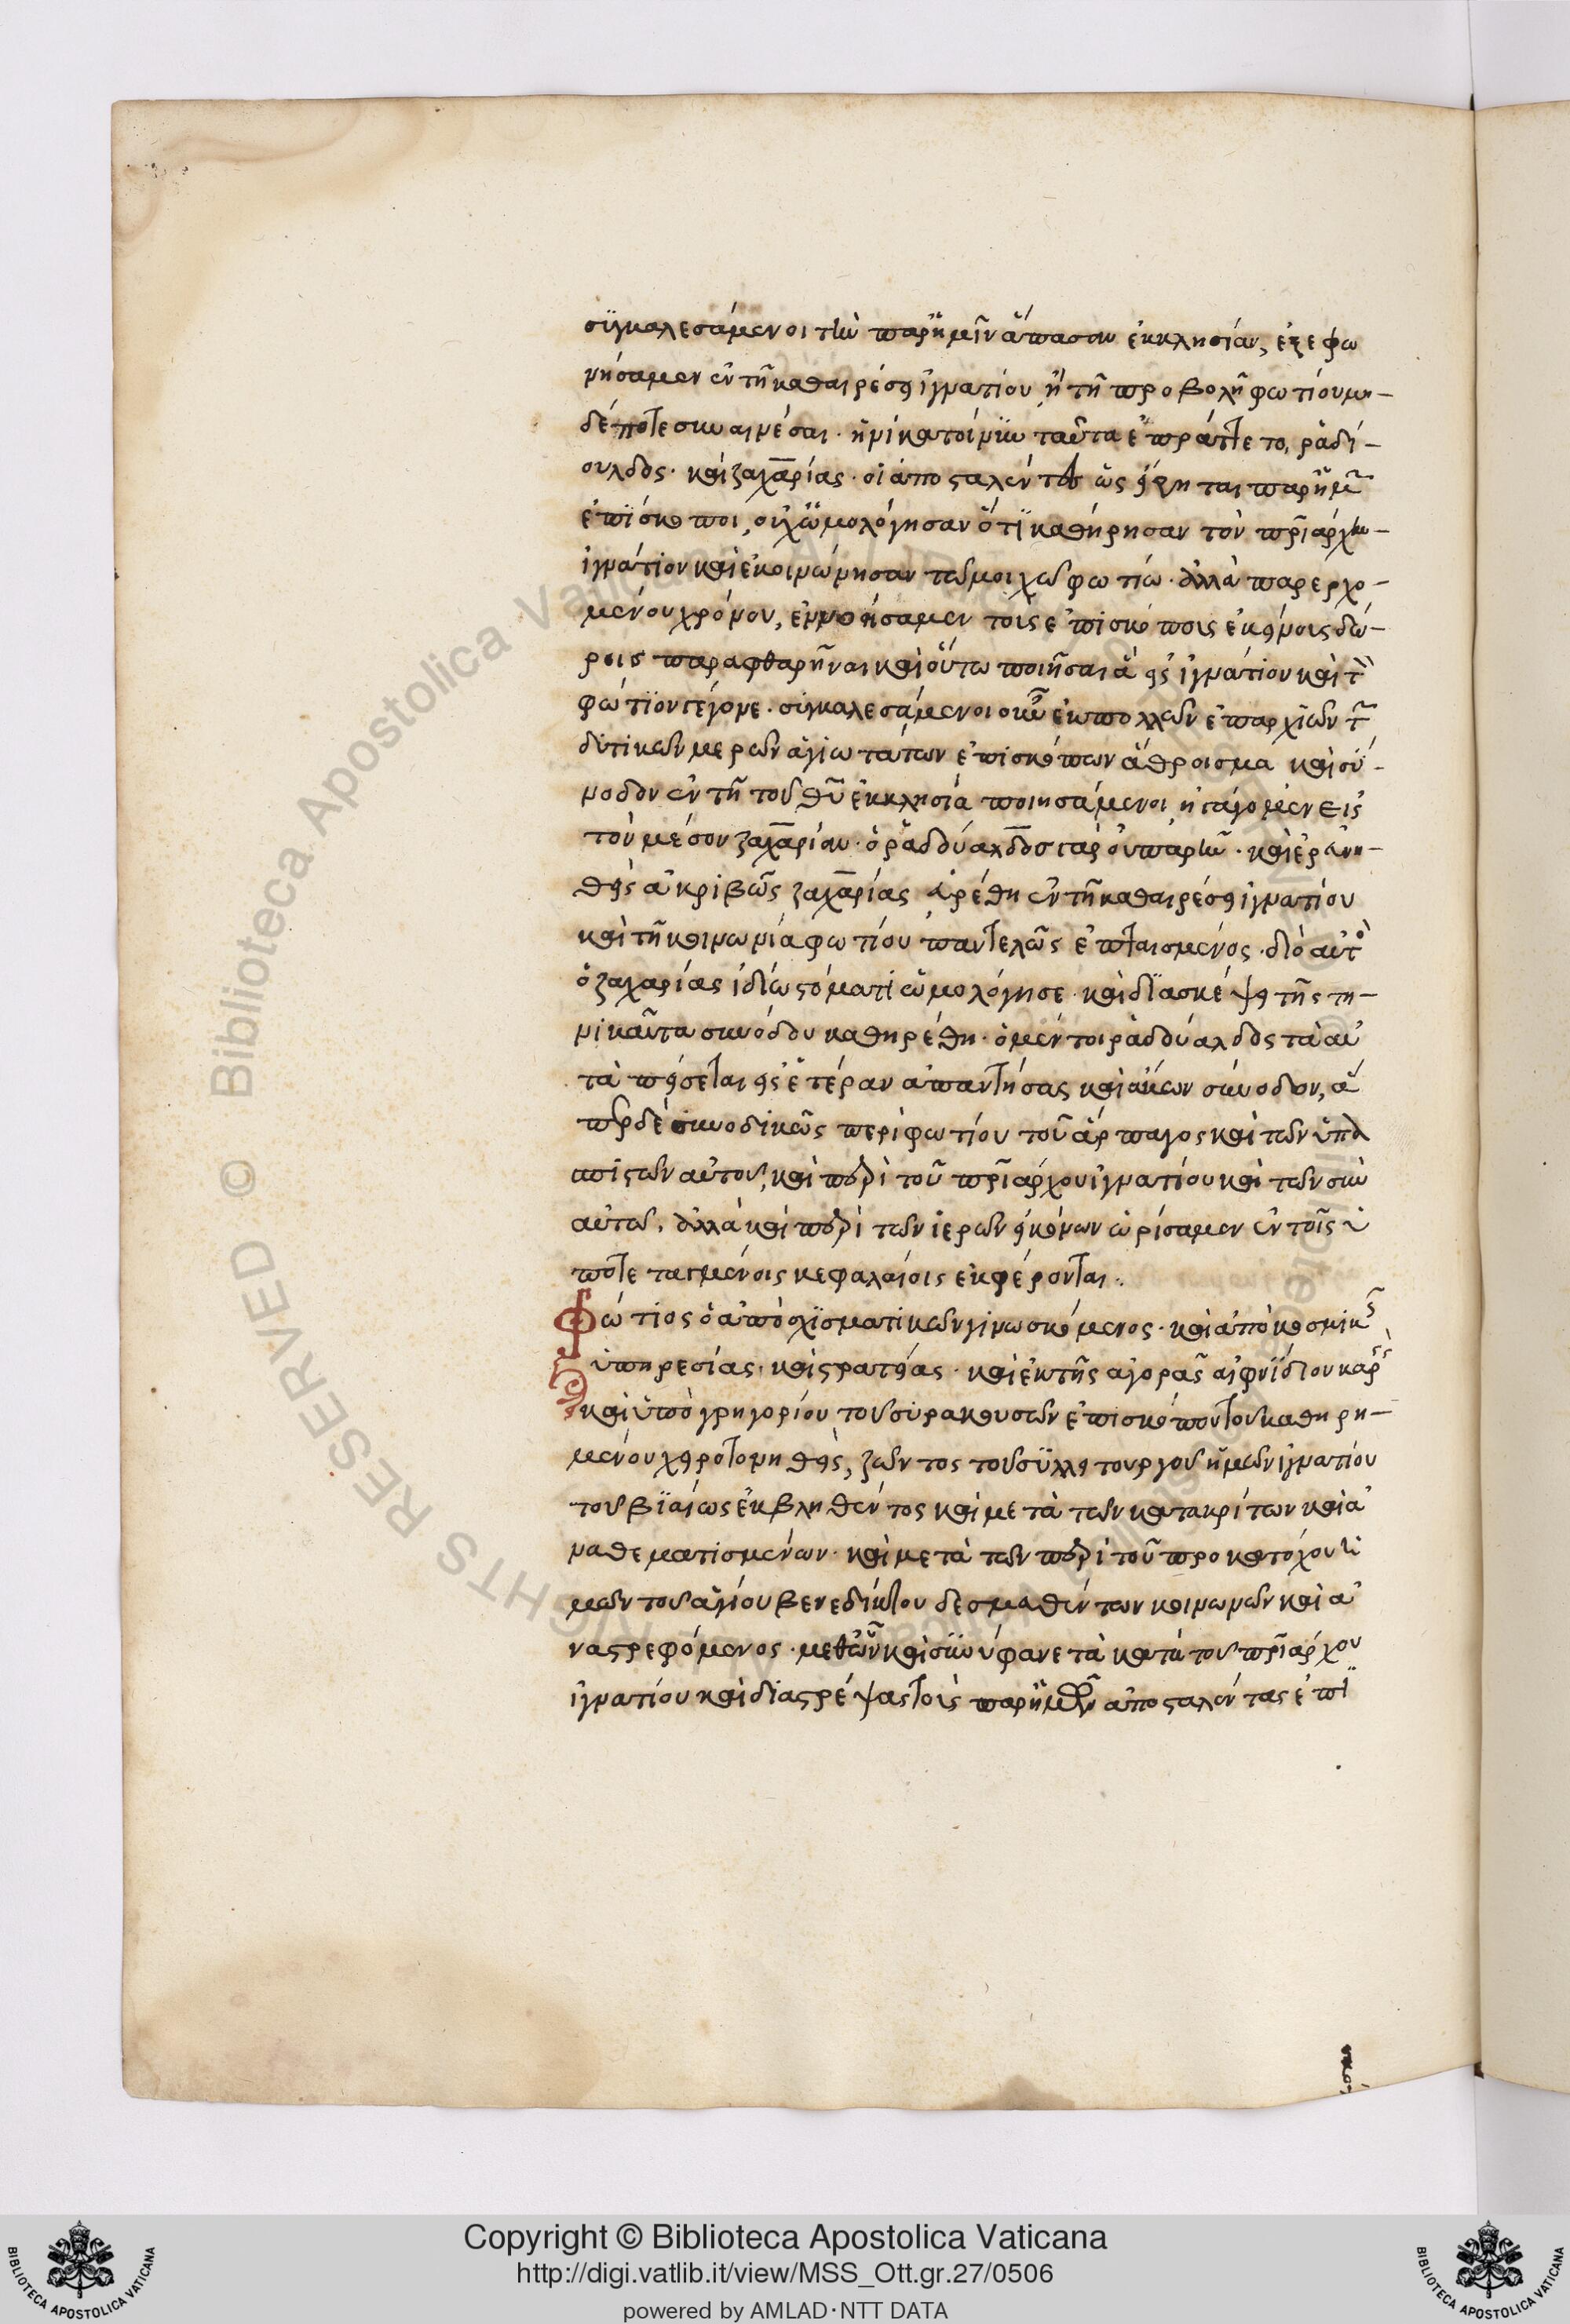 συγκαλεσάμενοι τὴν παρ' ἡμῖν ἅπασαν ἐκκλησίαν, ἐξεφω
νήσαμεν ἐν τῇ καθαιρέσει ἰγνατίου, ἢ τῇ προβολῇ φωτίου μη-
δέποτε συναινέσαι· ἡνίκα τοίνυν ταῦτα ἐπράττετο, ῥαδί-
ουλδος· καὶ ζαχαρίας· οἱ ἀποσταλέντες ὡς εἴρηται παρ' ἡμῶν
ἐπίσκοποι, οὐχ ὡμολόγησαν ὅτι καθήρησαν τὸν πριάρχην-
ἰγνάτιον καὶ ἐκοινώνησαν τῷ μοιχῷ φωτίῳ· ἀλλὰ παρερχο-
μένου χρόνου, ἐμυήσαμεν τοῖς ἐπισκόποις ἐκείνοις δώ-
ροις παραφθαρῆναι καὶ οὕτω ποιῆσαι ἃ εἰς ἰγνάτιον καὶ τὸν
φώτιον γέγονε· συγκαλεσάμενοι οὖν ἐκ πολλῶν ἐπαρχιῶν τῶν
δυτικῶν μερῶν ἁγιωτάτων ἐπισκόπων ἄθροισμα καὶ σύ-
νοδον ἐν τῇ τοῦ θυ ἐκκλησία ποιησάμενοι, ἠγάγομεν εἰς
τὸν μέσον ζαχαρίαν· ὁ ῥαδούαλδος γὰρ οὐ παρῆν· καὶ ἐρευνη-
θεὶς ἀκριβῶς ζαχαρίας εὑρέθη ἐν τῇ καθαιρέσει ἰγνατίου
καὶ τῇ κοινωνία φωτίου παντελῶς ἐπταισμένος· διὸ αὐτὸ
ὁ ζαχαρίας ἰδίω στόματι ὡμολόγησε· καὶ διασκέψει τῆς τη-
νικαῦτα συνόδου καθηρέθη· ὁ μέντοι ῥαδούαλδος τὰ αὐ
τὰ πείσεται εἰς ἑτέραν ἀπαντήσας καὶ ἄκων σύνοδον, ἅ
περ δὲ συνοδικῶς περὶ φωτίου τοῦ ἅρπαγος καὶ τῶν ὑπα
σπιστῶν αὐτοῦ, καὶ περὶ τοῦ πριάρχου ἰγνατίου καὶ τῶν σὺν
αὐτῷ, ἀλλὰ καὶ περὶ τῶν ἱερῶν εἰκόνων ὡρίσαμεν ἐν τοῖς ὑ
ποτεταγμένοις κεφαλαίοις ἐκφέρονται·
Φώτιος ὁ ἀπὸ σχισματικῶν γινωσκόμενος· καὶ ἀπὸ κοσμικῆς
ὑπηρεσίας· καὶ στρατείας· καὶ ἐκ τῆς ἀγορᾶς αἰφνίδιον καρεὶς
καὶ ὑπὸ γρηγορίου τοῦ συρακουσῶν ἐπισκόπου τοῦ καθηρη-
μένου χειροτονηθεὶς, ζῶντος τοῦ συλλειτουργοῦ ἡμῶν ἰγνατίου
τοῦ βιαίως ἐκβληθέντος καὶ μετὰ τῶν κατακρίτων καὶ ἀ
ναθεματισμένων· καὶ μετὰ τῶν περὶ τοῦ προκατόχου ἡ
μῶν τοῦ ἁγίου βενεδίκτου δεσμηθέντων κοινωνῶν καὶ ἀ
ναστρεφόμενος· μεθ' ὧν καὶ συνύφανε τὰ κατὰ τοῦ πριάρχου
ἰγνατίου καὶ διαστρέψας τοὺς παρ' ἡμῶν ἀποσταλέντας ἐπι
Copyright © Biblioteca Apostolica Vaticana
http://digi.vatlib.it/view/MSS_Ott.gr.27/0506
powered by AMLAD·NTT DATA